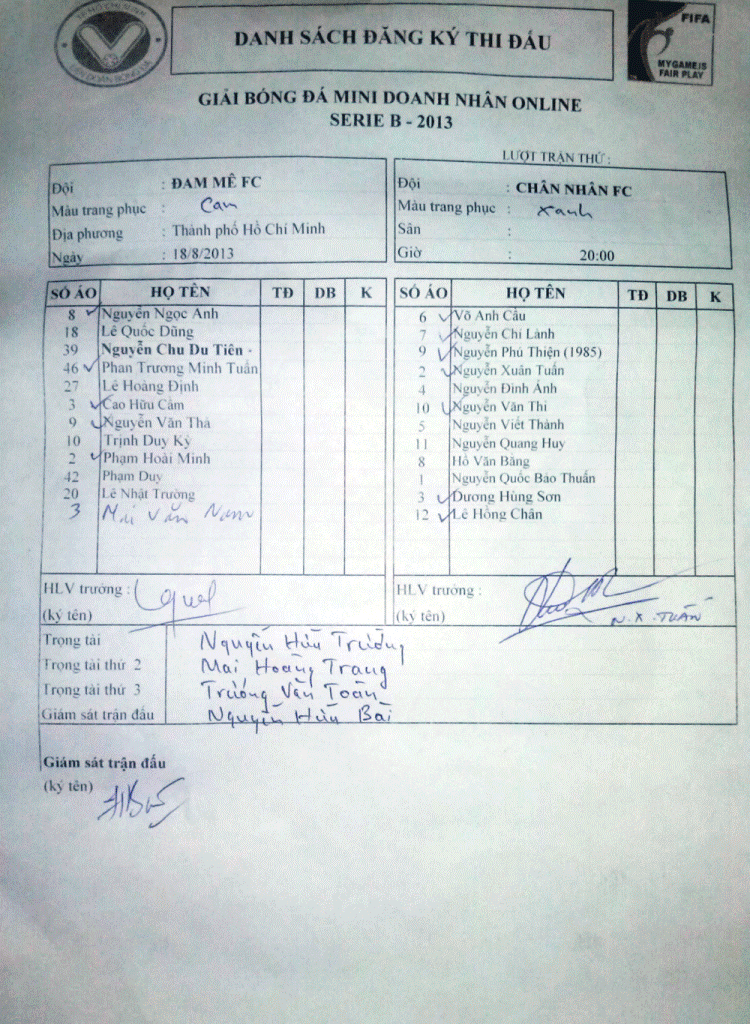 TP.HỒ CHÍ MINH
LIÊN ĐOÀN BÓNG ĐÁ
DANH SÁCH ĐĂNG KÝ THI ĐẤU
FIFA
MY GAME IS
FAIR PLAY
GIẢI BÓNG ĐÁ MINI DOANH NHÂN ONLINE
SERIE B - 2013
LƯỢT TRẬN THỨ :
Đội : ĐAM MÊ FC
Màu trang phục : Cam
Địa phương : Thành phố Hồ Chí Minh
Ngày : 18/8/2013
Đội : CHÂN NHÂN FC
Màu trang phục : xanh
Sân :
Giờ : 20:00
SỐ ÁO HỌ TÊN TĐ DB K
8 Nguyễn Ngọc Anh
18 Lê Quốc Dũng
39 Nguyễn Chu Du Tiên -
46 Phan Trương Minh Tuấn
27 Lê Hoàng Định
3 Cao Hữu Cầm
9 Nguyễn Văn Thà
10 Trịnh Duy Kỳ
2 Phạm Hoài Minh
42 Phạm Duy
20 Lê Nhật Trường
3 Mai Văn Nam
SỐ ÁO HỌ TÊN TĐ DB K
6 Võ Anh Cầu
7 Nguyễn Chí Lành
9 Nguyễn Phú Thiện (1985)
2 Nguyễn Xuân Tuấn
4 Nguyễn Đình Ánh
10 Nguyễn Văn Thi
5 Nguyễn Viết Thành
11 Nguyễn Quang Huy
8 Hồ Văn Bằng
1 Nguyễn Quốc Bảo Thuấn
3 Dương Hùng Sơn
12 Lê Hồng Chân
HLV trưởng :
(ký tên)
HLV trưởng :
(ký tên) N.X.TUẤN
Trọng tài Nguyễn Hữu Trường
Trọng tài thứ 2 Mai Hoàng Trang
Trọng tài thứ 3 Trương Văn Toàn
Giám sát trận đấu Nguyễn Hữu Bài
Giám sát trận đấu
(ký tên)